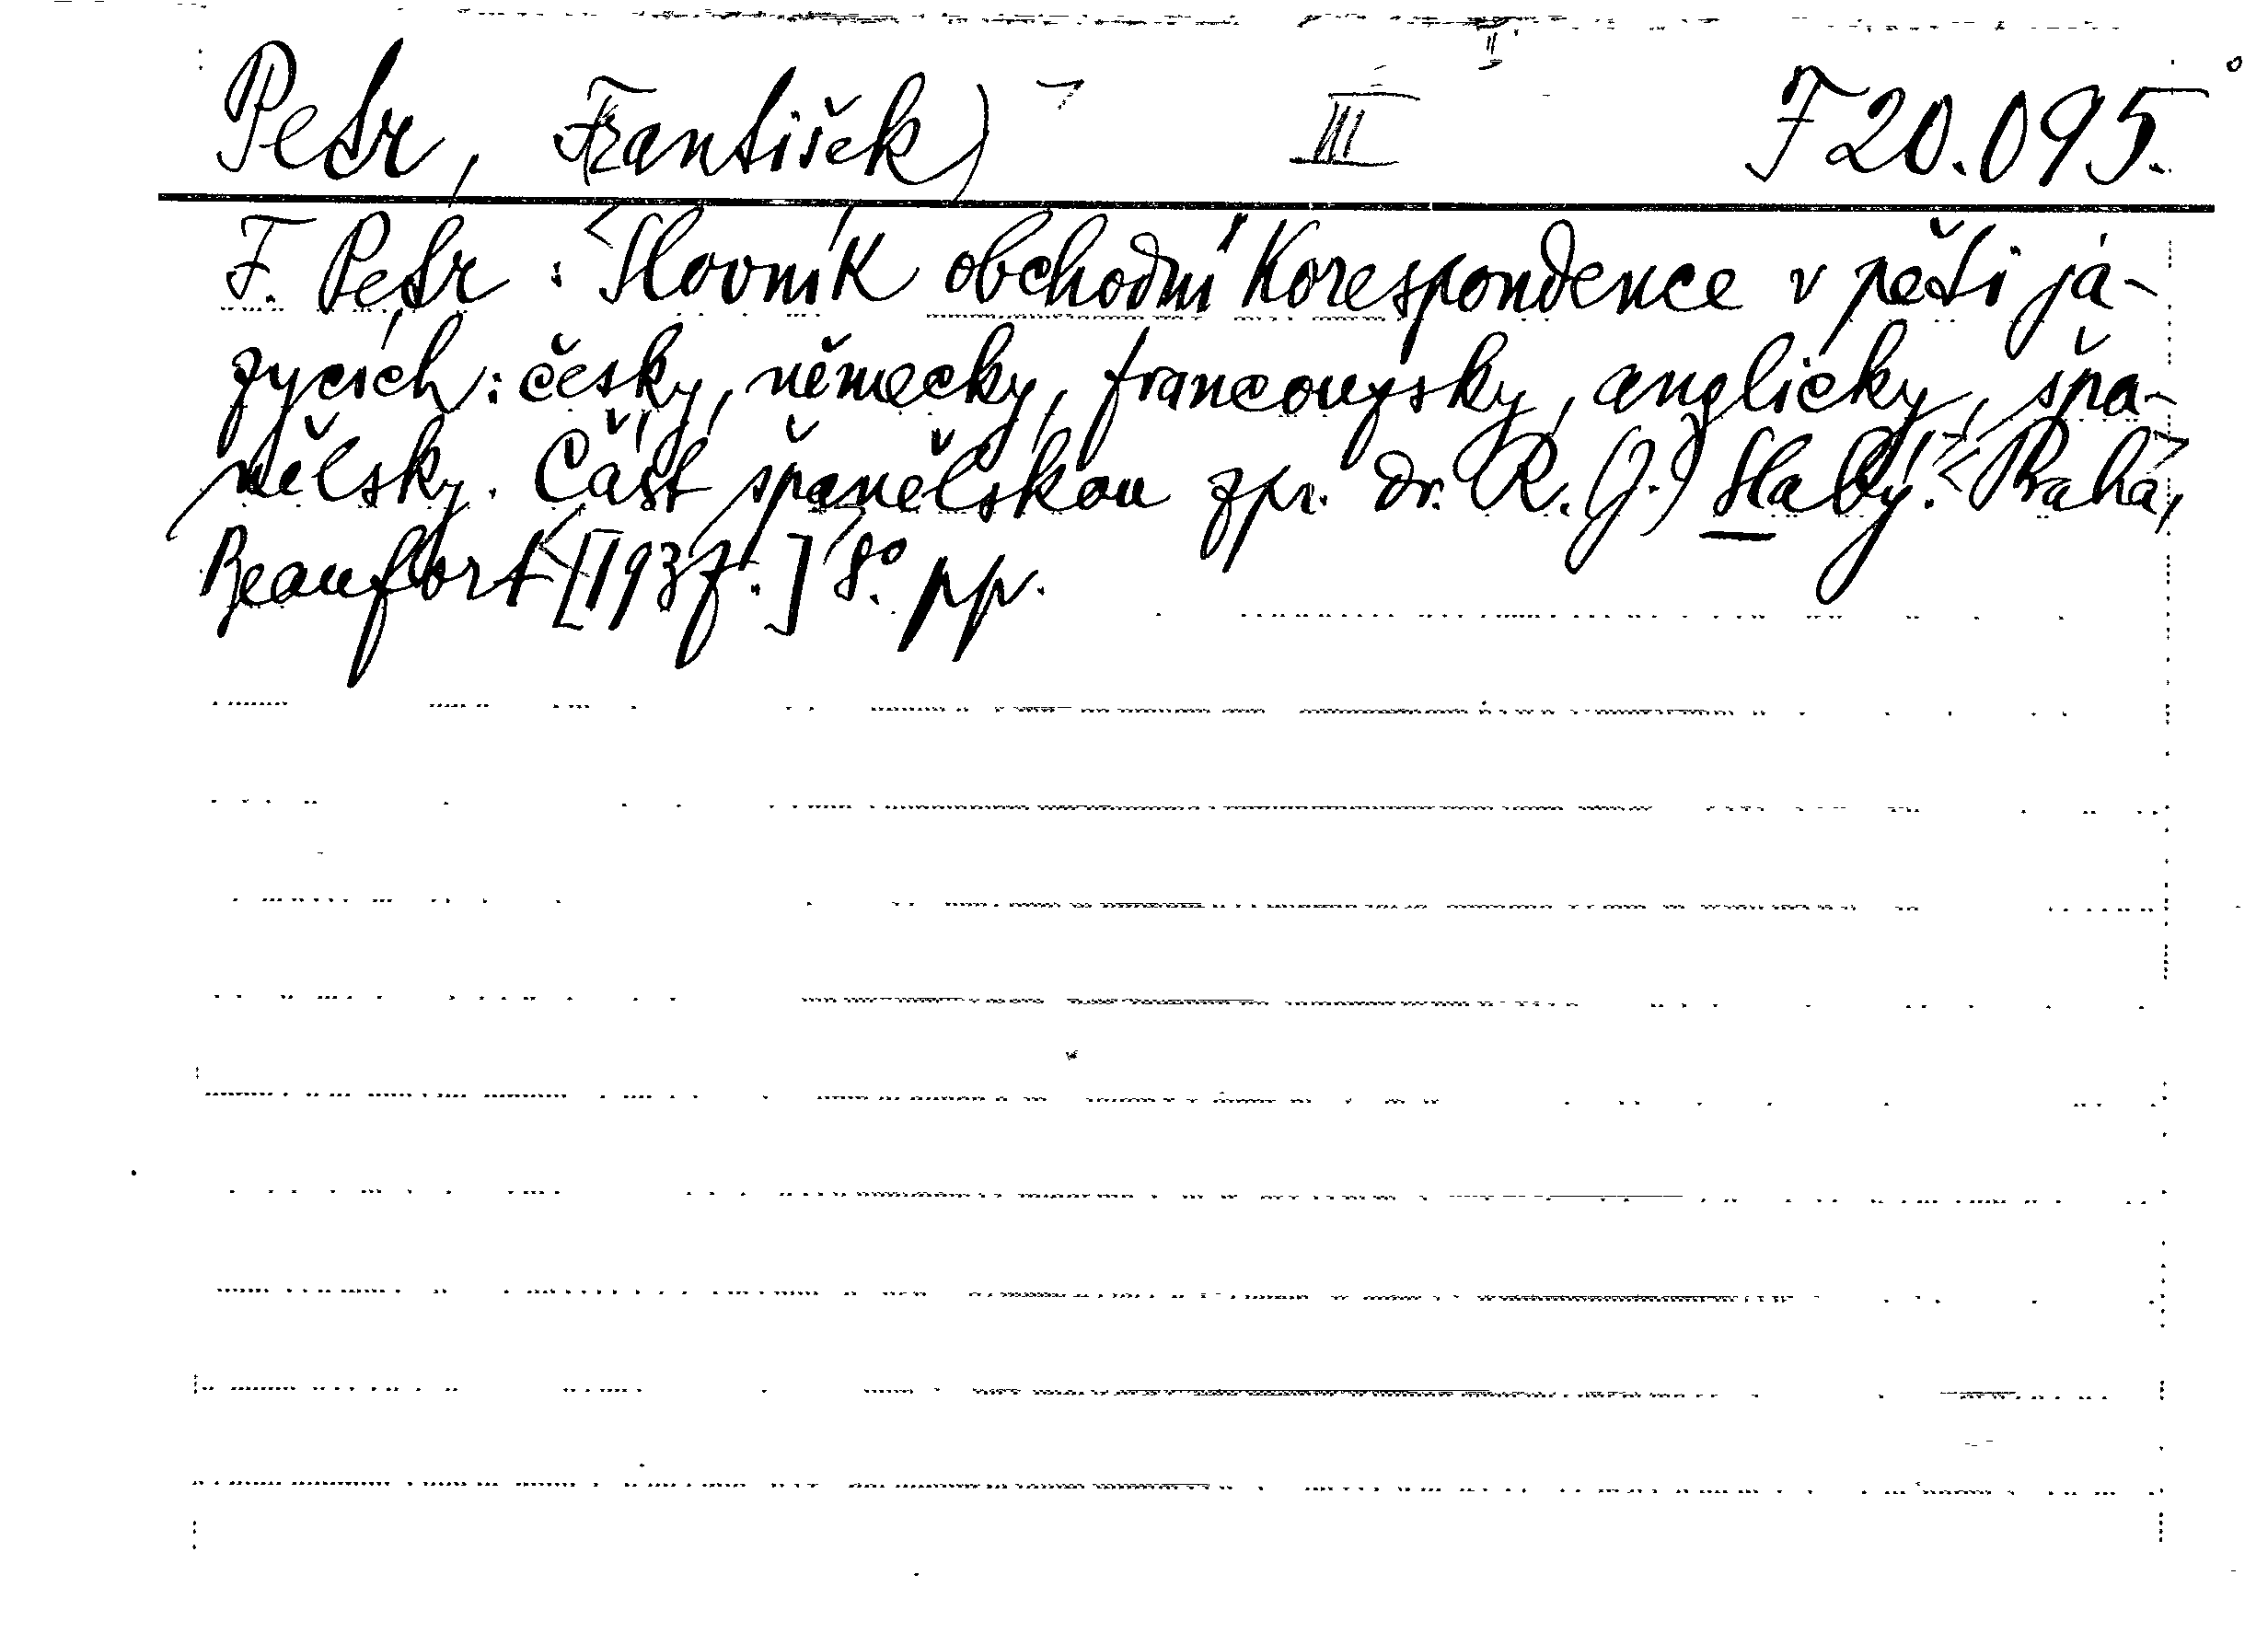 Petr, František) III F 20.095.
F. Petr: Slovník obchodní korespondence v pěti já-
zycích: česky, německy, francouzsky, anglicky, špa-
nělsky. Část španělskou zpr. dr. R. (J.) Slabý. Praha,
Beaufort [1937.] 8° pp.